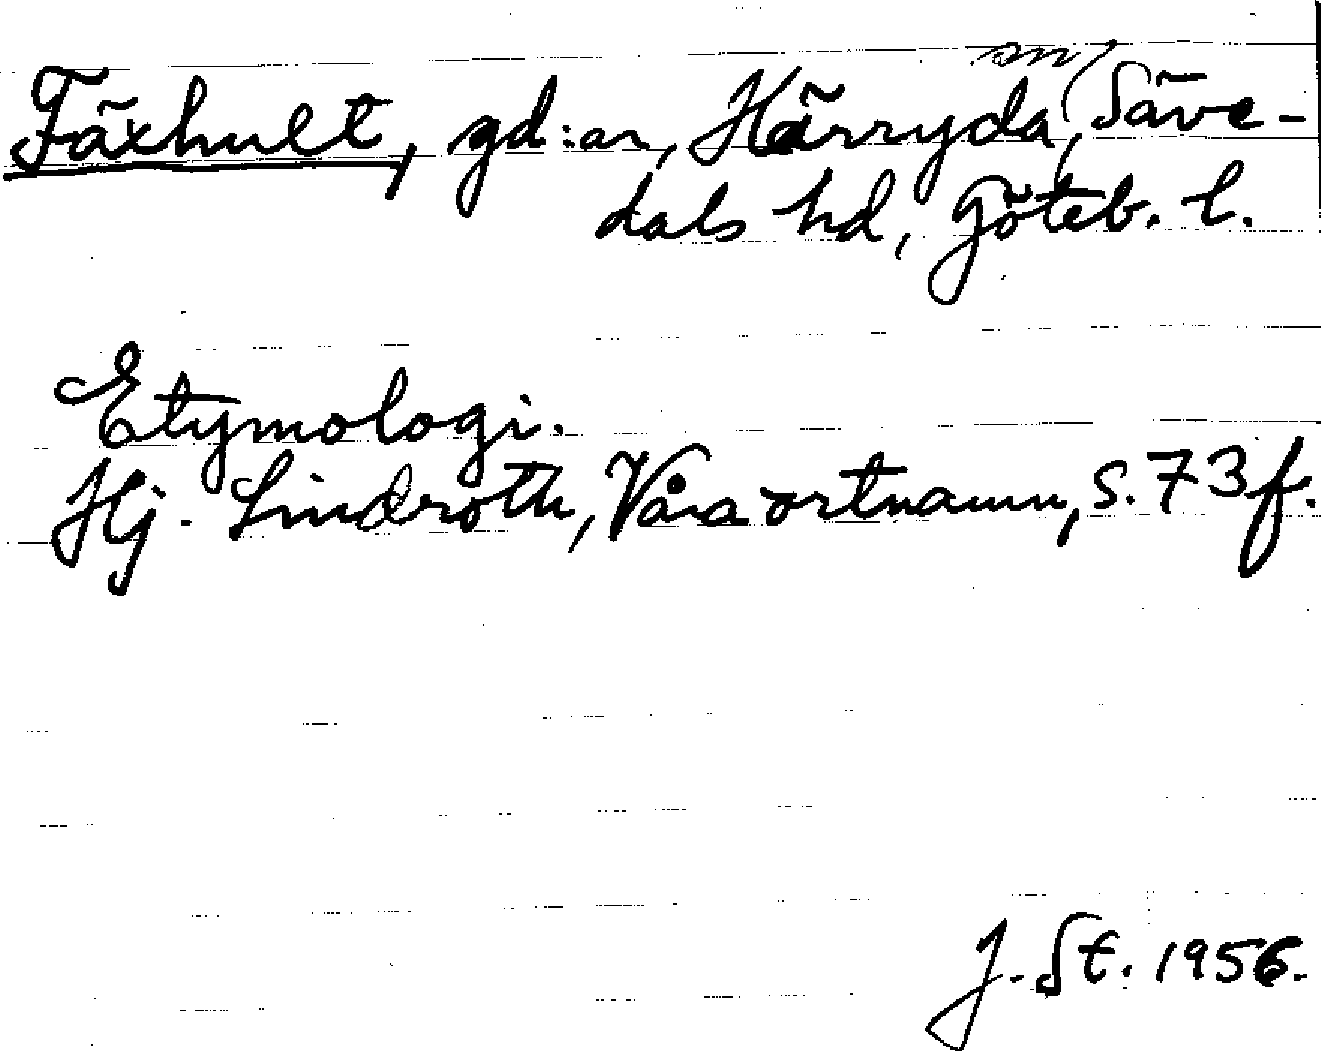 Fäxhult, gd:ar, Härryda sn, Säve-
dals hd, Göteb. l.
Etymologi.
Hj. Lindroth, Våra ortnamn, s. 73 f.
J. St. 1956.